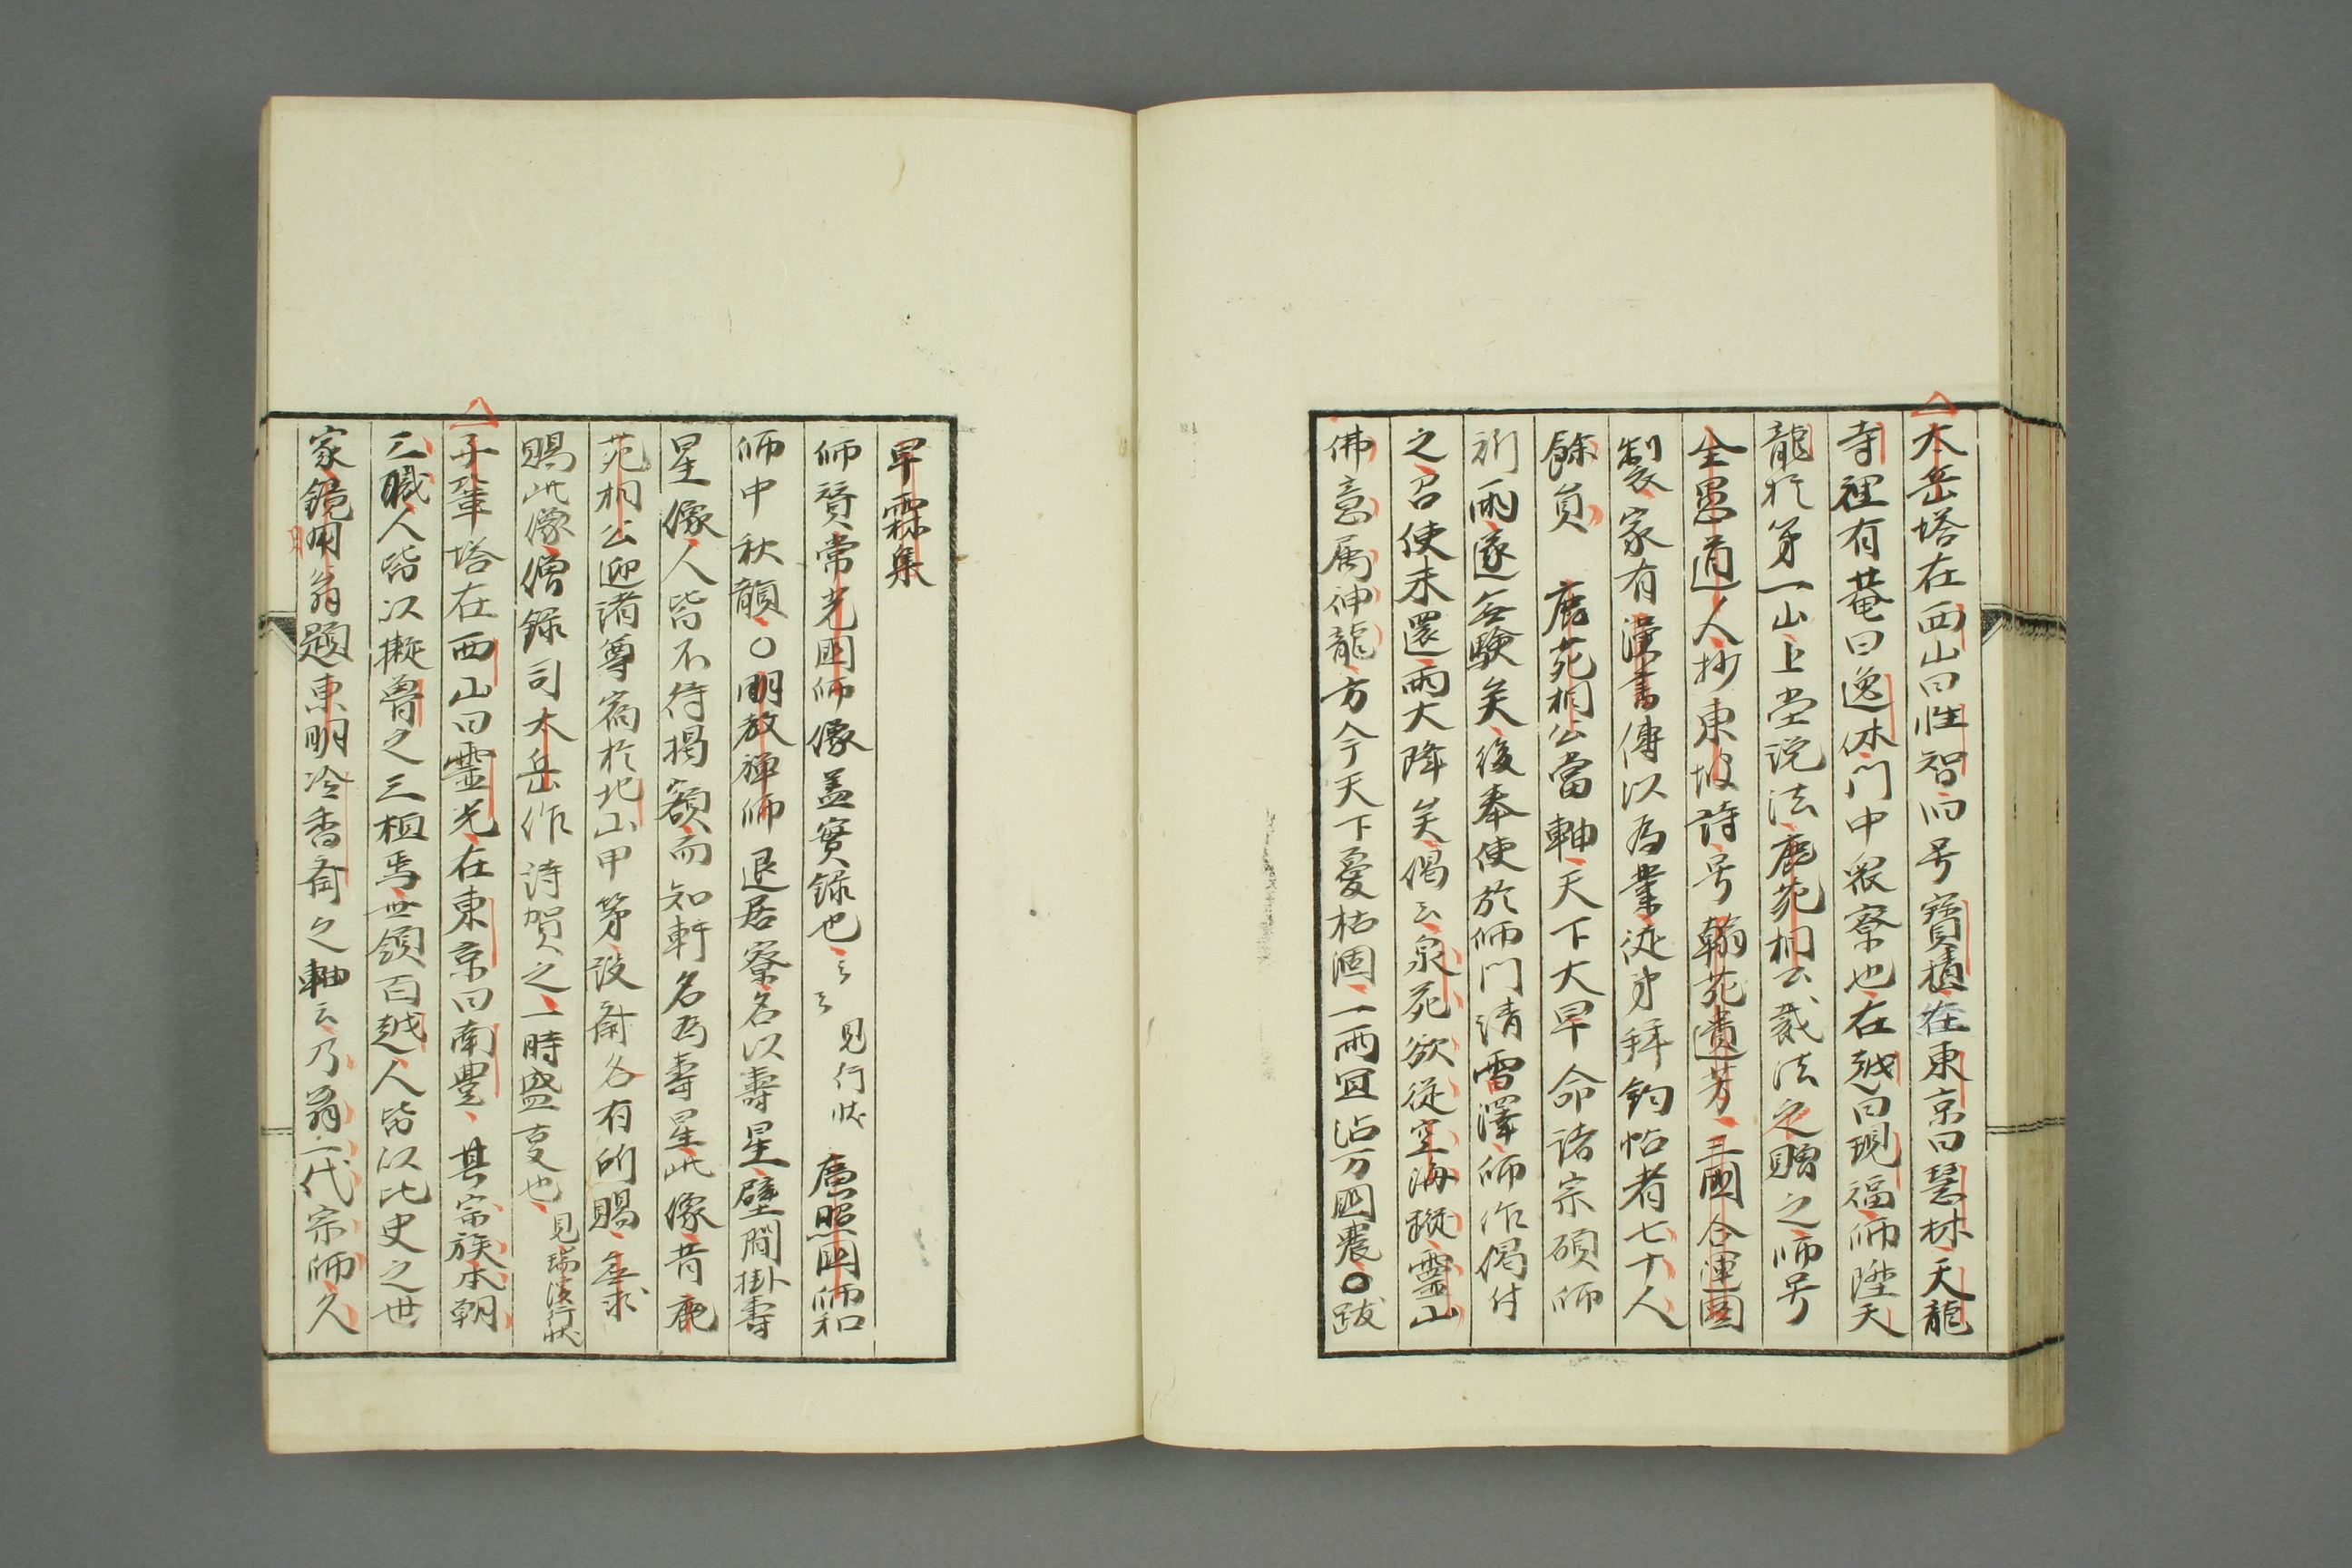 太岳塔在西山曰性智而号寶積在東京曰慧林天龍
寺裡有菴曰逸休門中衆寮也在越曰現福師陞天
龍於第一山上堂説法鹿苑相公裁法之贈之師号
全愚道人抄東坡詩号翰苑遺芳三國合運圖
製家有漢書傳以為業徒弟拜鈞帖者七十人
餘員　鹿苑相公當軸天下大旱命諸宗碩師
祈雨遂無驗矣後奉使於師門請雪澤師作偈付
之召使未還雨大降矣偈云泉苑欲従空海蹤靈山
佛意属神龍方今天下憂枯涸一雨宜沾万國農〇跋
旱霖集
師賛常光國師像盖實録也云云見行状　廣照國師和
師中秋韻〇明教禅師退居寮名以壽星壁間掛壽
星像人皆不待揭額而知軒名為壽星此像昔鹿
苑相公迎諸尊宿於北山甲第設斎各有所賜無求
賜此像僧録司太岳作詩賀之一時盛事也見瑞渓行状
子葦塔在西山曰靈光在東京曰南豊其宗族本朝
三職人皆以擬魯之三桓焉世領百越人皆以比史之世
家鏡用翁題東明冷香斎之軸云乃翁一代宗師久